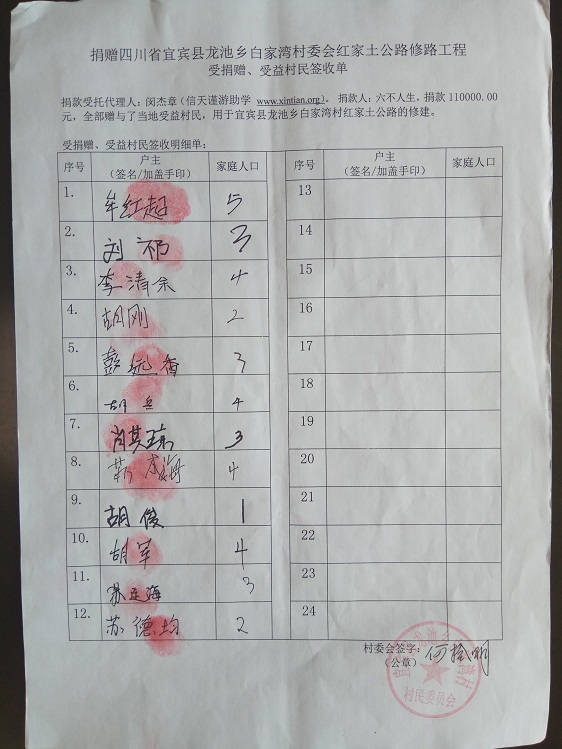 捐赠四川省宜宾县龙池乡白家湾村委会红家土公路修路工程
受捐赠、受益村民签收单
捐款受托代理人：闵杰章（信天谨游助学 www.xintian.org），捐款人：六不人生，捐款 110000.00
元，全部赠与了当地受益村民，用于宜宾县龙池乡白家湾村红家土公路的修建。
受捐赠、受益村民签收明细单：
序号 户主（签名/加盖手印） 家庭人口 序号 户主（签名/加盖手印） 家庭人口
1. 牟红超 5 13
2. 刘祁 3 14
3. 李清余 4 15
4. 胡刚 2 16
5. 彭远香 3 17
6. 胡兵 4 18
7. 肖其琼 3 19
8. 4 20
9. 胡俊 1 21
10. 胡军 4 22
11. 苏连海 3 23
12. 苏德均 2 24
村委会签字：
（公章）
村民委员会